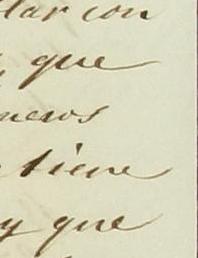 llar con
que
menos
tiene
y que